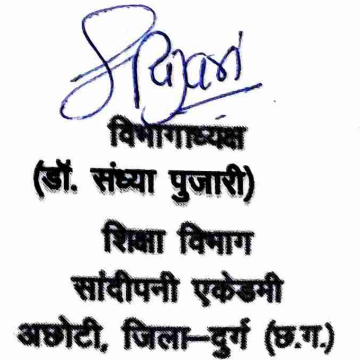 SPujari
विभागाध्यक्ष
(डॉ. संध्या पुजारी)
शिक्षा विभाग
सांदीपनी एकेडमी
अछोटी, जिला–दुर्ग (छ.ग.)